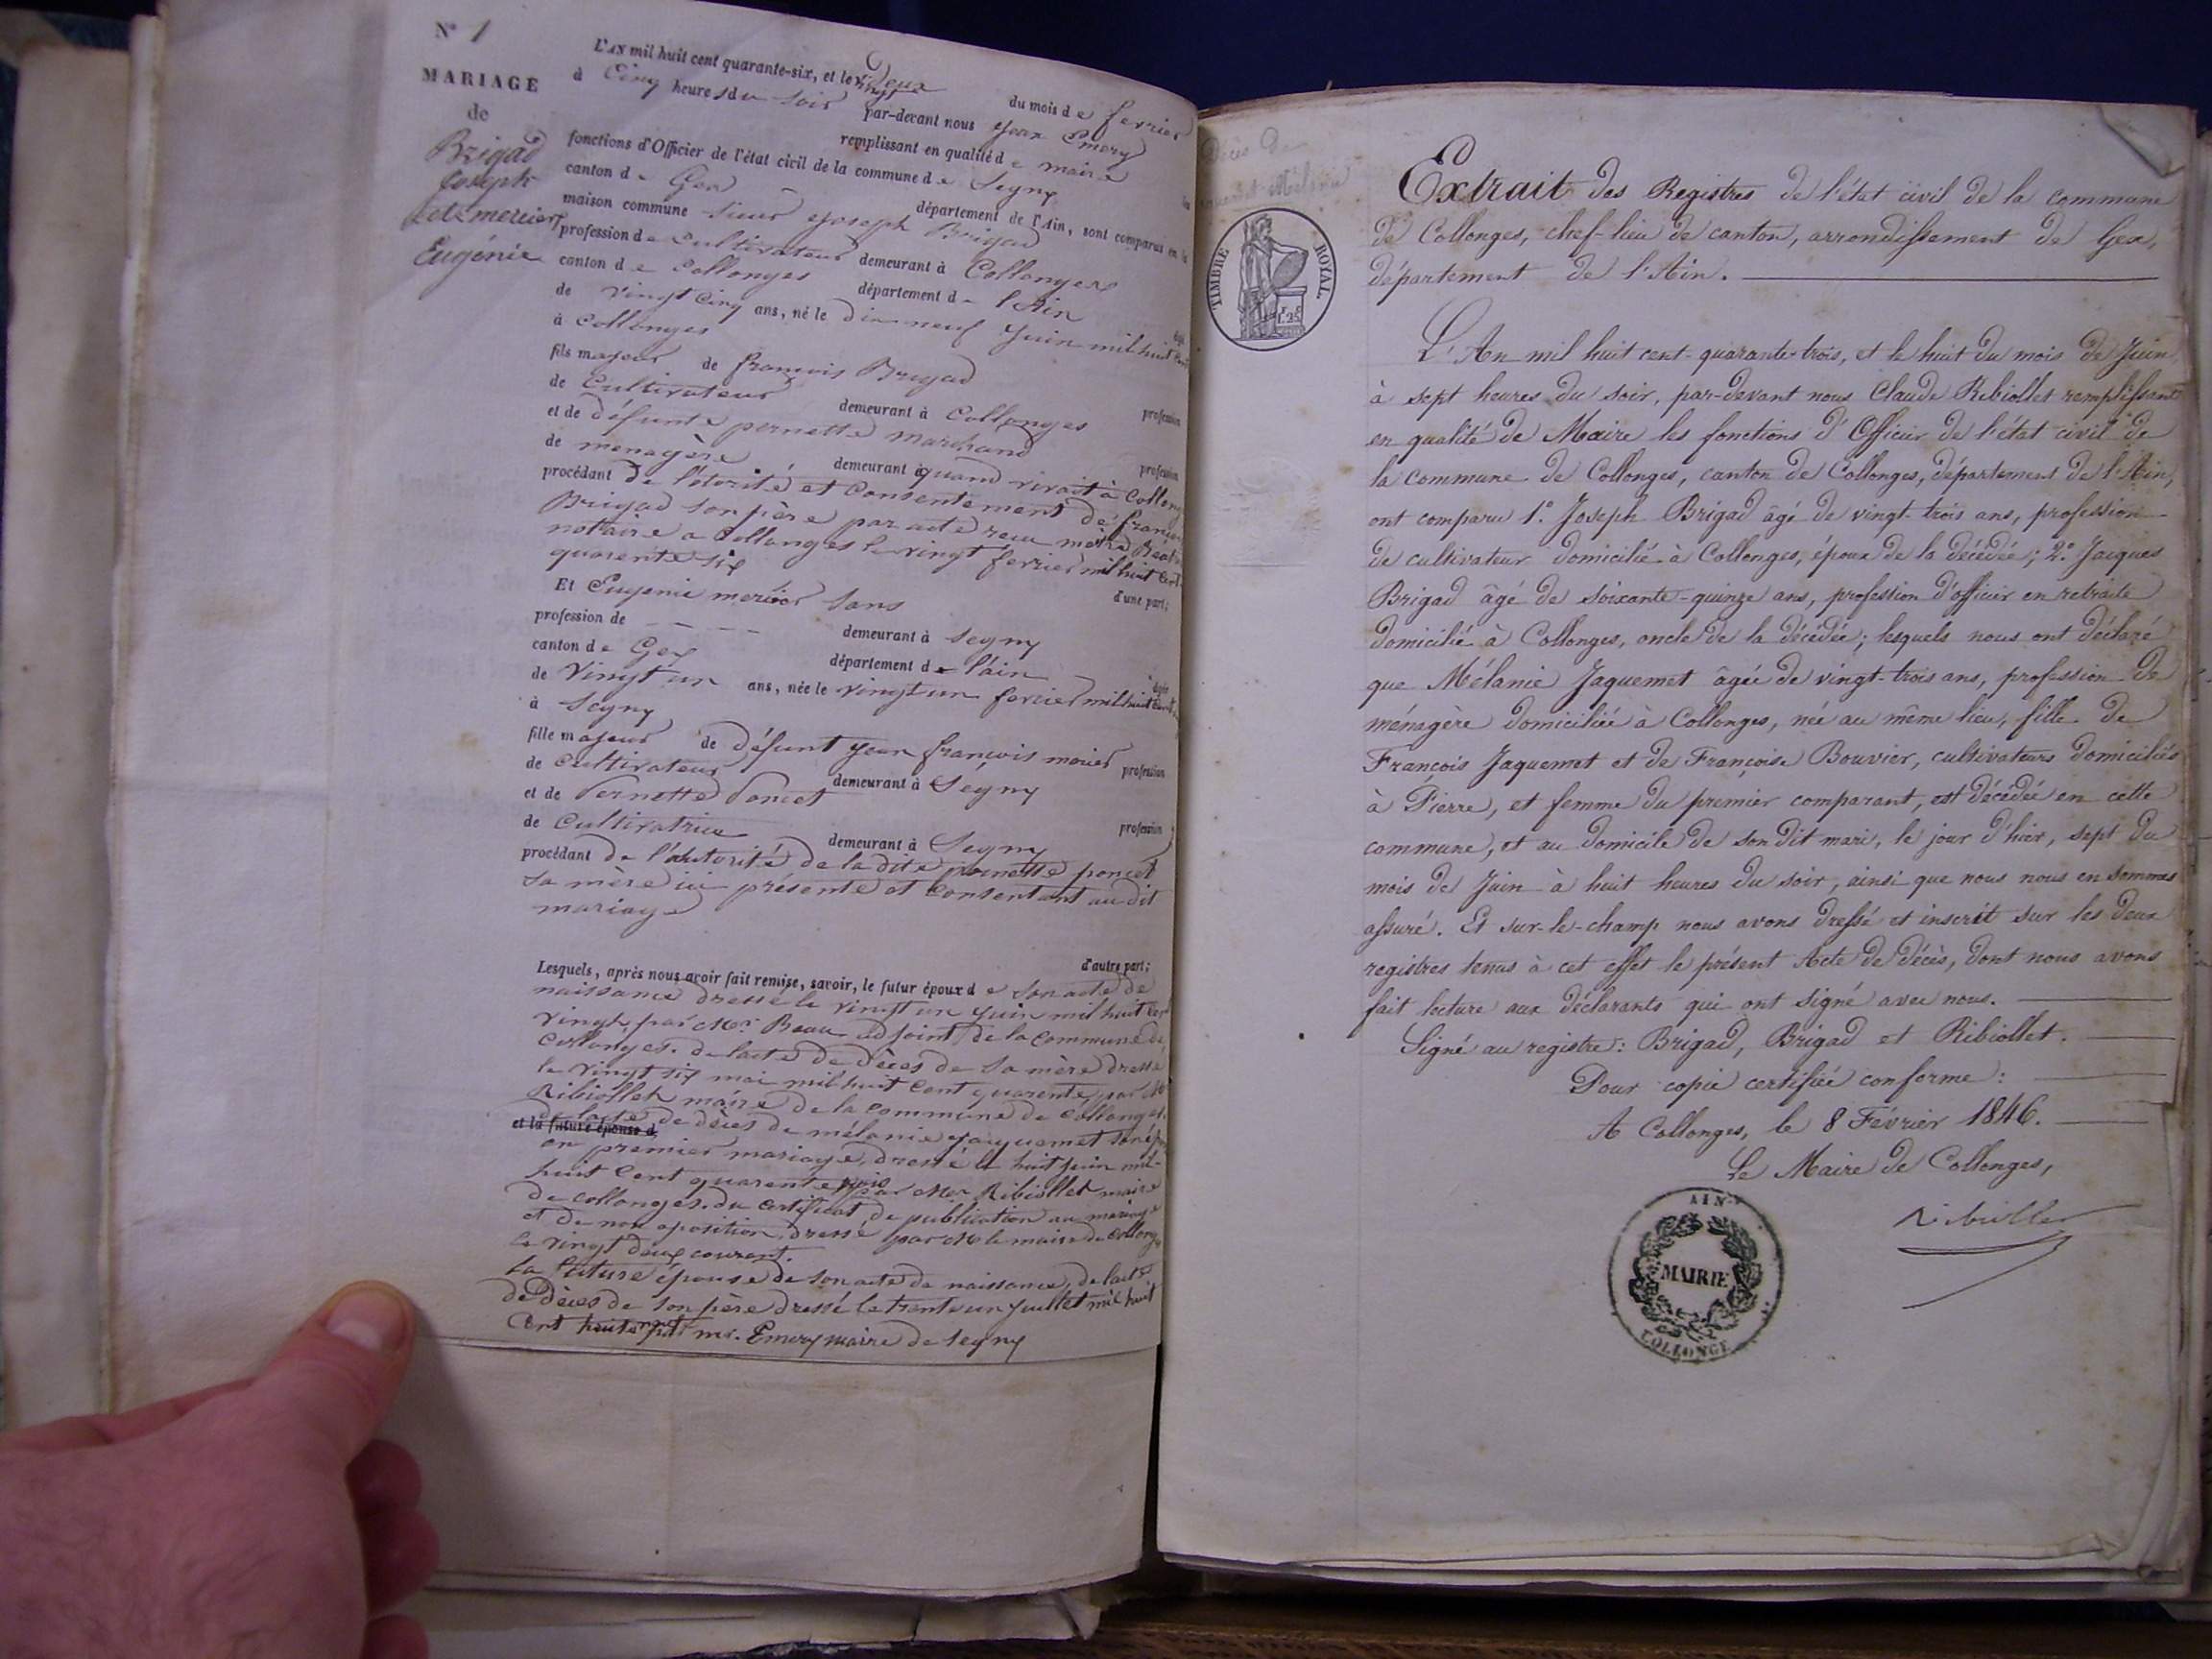 N° 1
MARIAGE
de
Brigad
Joseph
et mercier
Eugénie
L'AN mil huit cent quarante-six, et le vingt Deux du mois de fevrier
à Cinq heures du soir par-devant nous jean Emery
remplissant en qualité de maire
fonctions d'Officier de l'état civil de la commune de Segny
canton de Gex département de l'Ain, sont comparus en la
maison commune sieur joseph Brigad
profession de cultivateur demeurant à Collonges
canton de Collonges département de l'Ain
de vingt cinq ans, né le dix neuf juin mil huit cent
à collonges
fils majeur de francois Brigad profession
de Cultivateur demeurant à Collonges
et de défunte pernette marchand profession
de menagère demeurant à quand vivait à Collong
procédant de l'otorité et consentement de francois
Brigad son père par acte recu maitre
notaire a Collonges le vingt fevrier mil huit cent
quarente six d'une part;
Et Eugenie mercier sans
profession de demeurant à Segny
canton de Gex département de l'ain
de Vingt un ans, née le vingt un fevrier mil huit cent
à Segny
fille majeur de défunt jean francois mercier profession
de Cultivateur demeurant à Ségny
et de Pernette Poncet profession
de Cultivatrice demeurant à Segny
procédant de l'autorité de la dite pernette poncet
sa mère ici présente et consentant au dit
mariage
d'autre part;
Lesquels, après nous avoir fait remise, savoir, le futur époux de son acte de
naissance dressé le vingt un juin mil huit cent
vingt par Mer. Beau adjoint de la commune de
Collonges. de lacte de dèces de sa mère dressé
le vingt six mai mil huit cent quarente par Mr
Ribiollet maire de la commune de Collonges.
de lacte de dèces de mélanie jaquemet son ép
et la future épouse d
en premier mariage, dressé le huit juin mil
huit cent quarente trois par Mer Ribiollet maire
de collonges. du certificat de publication au mariage
et de non oposition, dressé par M le maire de Collong
le vingt deux courant.
La future épouse de son acte de naissance, de lacte
de Dèces de son père dressé le trente un juillet mil huit
Cent mr. Emery maire de Segny
TIMBRE ROYAL
Extrait des Registres de l'état civil de la commune
de Collonges, chef-lieu de canton, arrondissement de Gex,
département de l'Ain.
L'An mil huit cent quarante-trois, et le huit du mois de Juin,
à sept heures du soir, par-devant nous Claude Ribiollet remplissant
en qualité de Maire les fonctions d'Officier de l'état civil de
la commune de Collonges, canton de Collonges, département de l'Ain,
ont comparu 1.° Joseph Brigad âgé de vingt-trois ans, profession
de cultivateur domicilié à Collonges, époux de la décédée; 2.° Jacques
Brigad âgé de soixante-quinze ans, profession d'officier en retraite
domicilié à Collonges, oncle de la décédée; lesquels nous ont déclaré
que Mélanie Jaquemet âgée de vingt-trois ans, profession de
ménagère domiciliée à Collonges, née au même lieu, fille de
François Jaquemet et de Françoise Bouvier, cultivateurs domiciliés
à Pierre, et femme du premier comparant, est décédée en cette
commune, et au domicile de son dit mari, le jour d'hier, sept du
mois de Juin à huit heures du soir, ainsi que nous nous en sommes
assuré. Et sur-le-champ nous avons dressé et inscrit sur les deux
registres tenus à cet effet le présent Acte de décès, dont nous avons
fait lecture aux déclarants qui ont signé avec nous.
Signé au registre: Brigad, Brigad et Ribiollet.
Pour copie certifiée conforme:
A Collonges, le 8 Février 1846.
Le Maire de Collonges,
Ribiollet
AIN
MAIRIE
COLLONGE